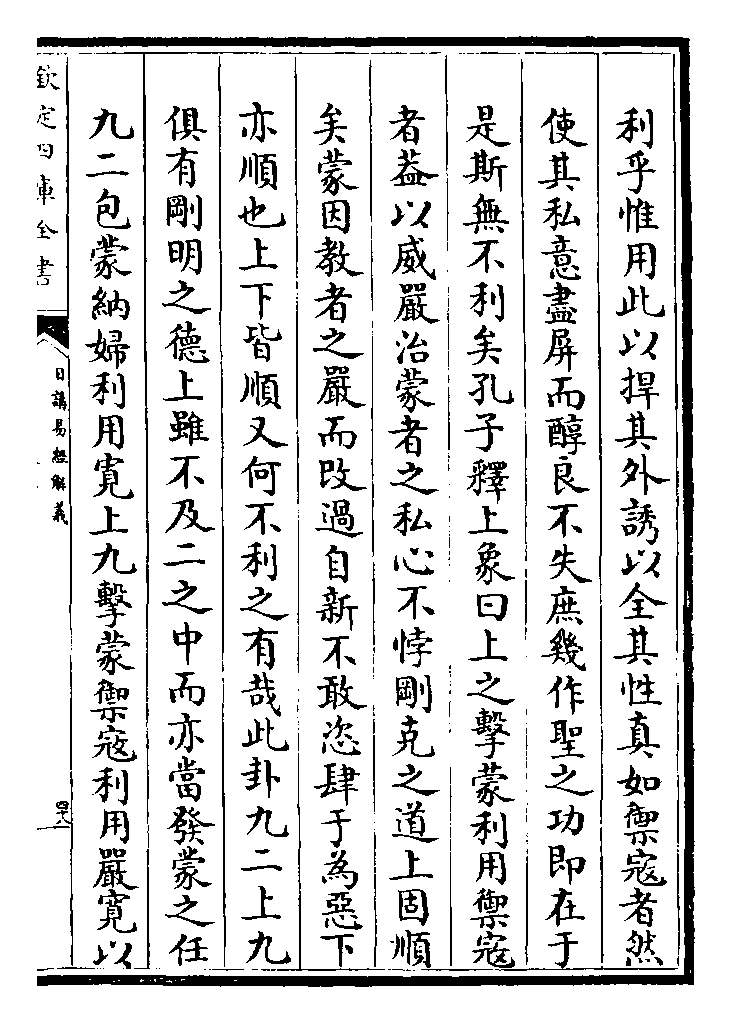 利乎惟用此以捍其外誘以全其性真如禦寇者然
使其私意盡屏而醇良不失庶幾作聖之功即在于
是斯無不利矣孔子釋上象曰上之擊蒙利用禦寇
者葢以威嚴治蒙者之私心不悖剛克之道上固順
矣蒙因教者之嚴而改過自新不敢恣肆于為惡下
亦順也上下皆順又何不利之有哉此卦九二上九
俱有剛明之德上雖不及二之中而亦當發蒙之任
九二包蒙納婦利用寬上九擊蒙禦寇利用嚴寬以
欽定四庫全書
日講易經解義